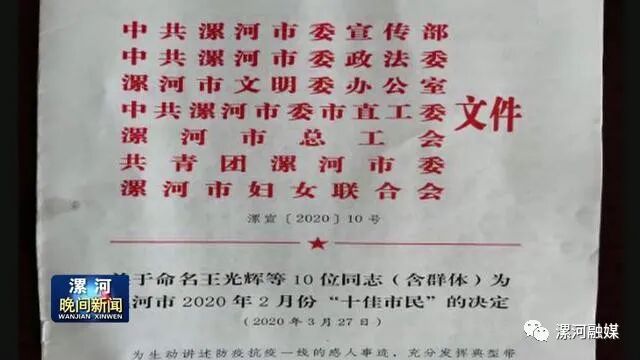 中共漯河市委宣传部
中共漯河市委政法委
漯河市文明委办公室
中共漯河市委市直工委
漯河市总工会
共青团漯河市委
漯河市妇女联合会
文件
漯宣〔2020〕10号
于命名王光辉等10位同志（含群体）为
河市2020年2月份“十佳市民”的决定
（2020年3月27日）
为生动讲述防疫抗疫一线的感人事迹，充分发挥典型带
漯河
晚间新闻
WANJIAN XINWEN
漯河融媒